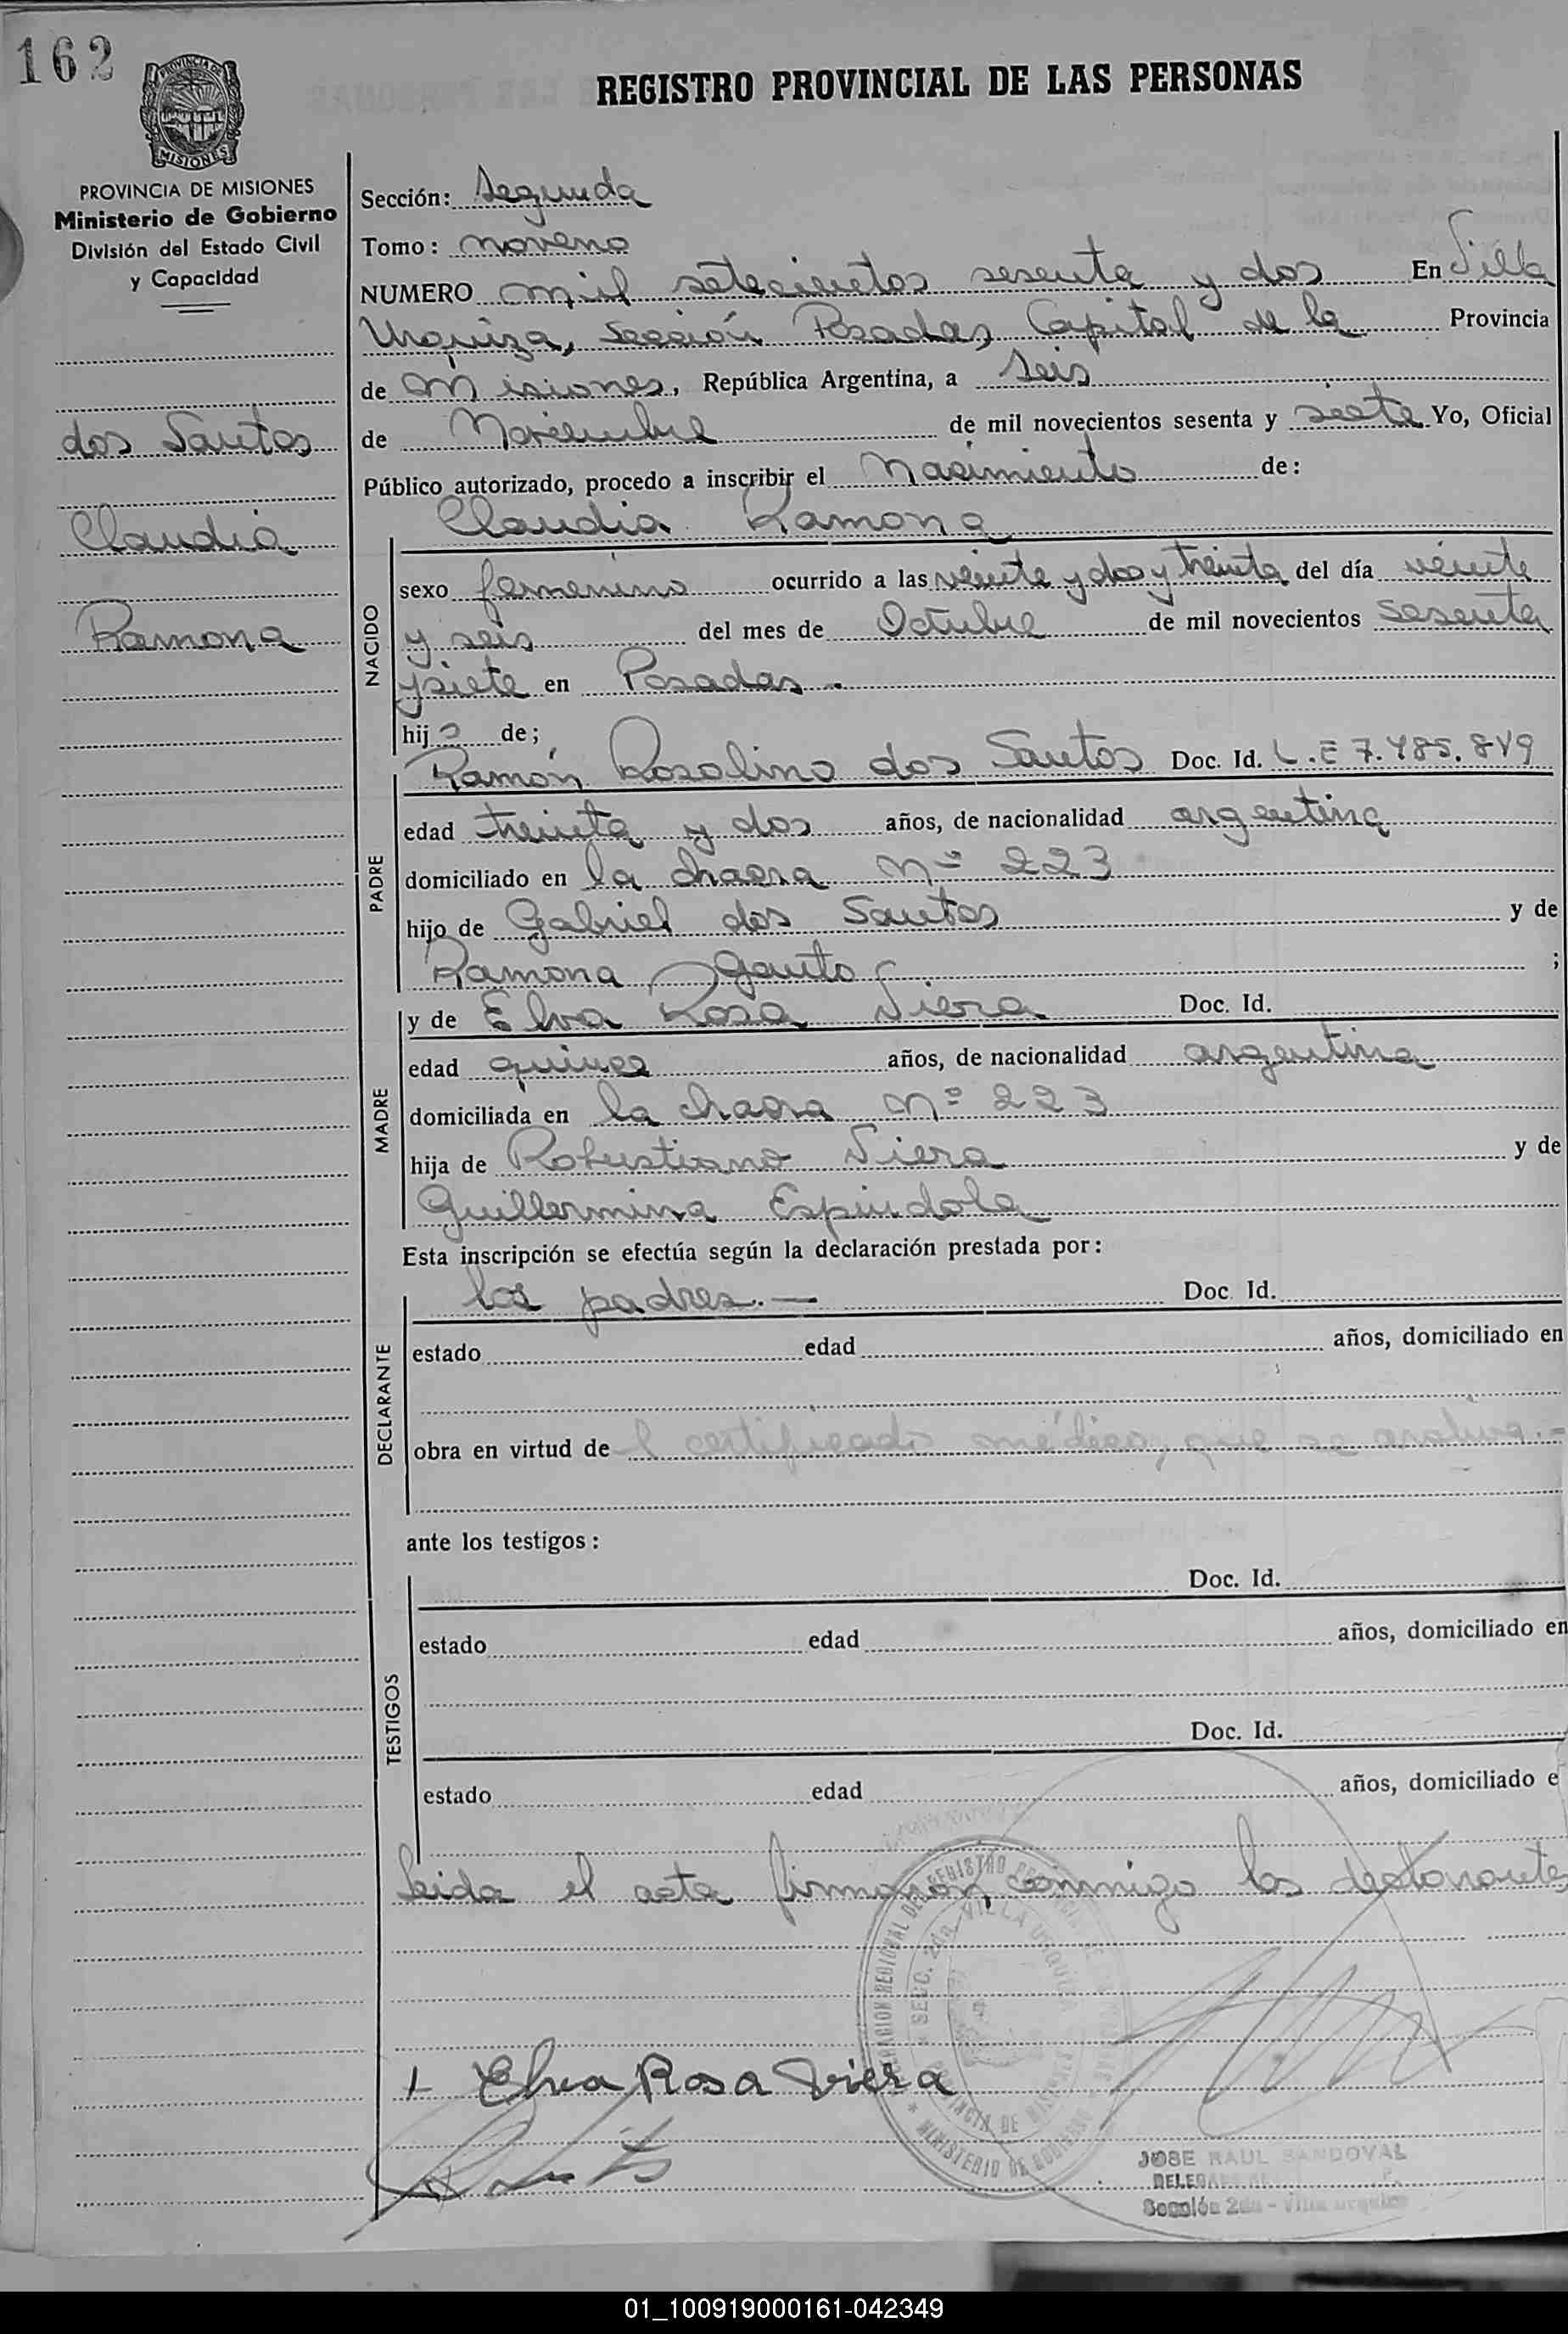 162
REGISTRO PROVINCIAL DE LAS PERSONAS
PROVINCIA DE MISIONES
Ministerio de Gobierno
División del Estado Civil
y Capacidad
dos Santos
Claudia
Ramona
Sección: Segunda
Tomo: noveno
NUMERO mil setecientos sesenta y dos En Villa
Urquiza, sección Posadas, Capital de la Provincia
de Misiones, República Argentina, a seis
de Noviembre de mil novecientos sesenta y siete Yo, Oficial
Público autorizado, procedo a inscribir el Nacimiento de:
Claudia Ramona
NACIDO
sexo femenino ocurrido a las veinte y dos y treinta del día veinte
y seis del mes de Octubre de mil novecientos sesenta
y siete en Posadas.
hija de;
PADRE
Ramón Rosalino dos Santos Doc. Id. L.E 7.485.849
edad treinta y dos años, de nacionalidad argentina
domiciliado en la chacra Nº 223
hijo de Gabriel dos Santos y de
Ramona Gauto ;
MADRE
y de Elva Rosa Viera Doc. Id.
edad quince años, de nacionalidad argentina
domiciliada en la chacra Nº 223
hija de Robustiano Viera y de
Guillermina Espindola
Esta inscripción se efectúa según la declaración prestada por:
DECLARANTE
los padres.— Doc. Id.
estado edad años, domiciliado en
obra en virtud de l certificado médico, que se archiva.-
ante los testigos:
TESTIGOS
Doc. Id.
estado edad años, domiciliado en
Doc. Id.
estado edad años, domiciliado e
Leida el acta firmaron, conmigo los declarantes
Elva Rosa Viera
SECC. 2da. VILLA URQUIZA
PROVINCIA DE MISIONES
* MINISTERIO DE GOBIERNO
JOSE RAUL SANDOVAL
Sección 2da - Villa Urquiza
01_100919000161-042349